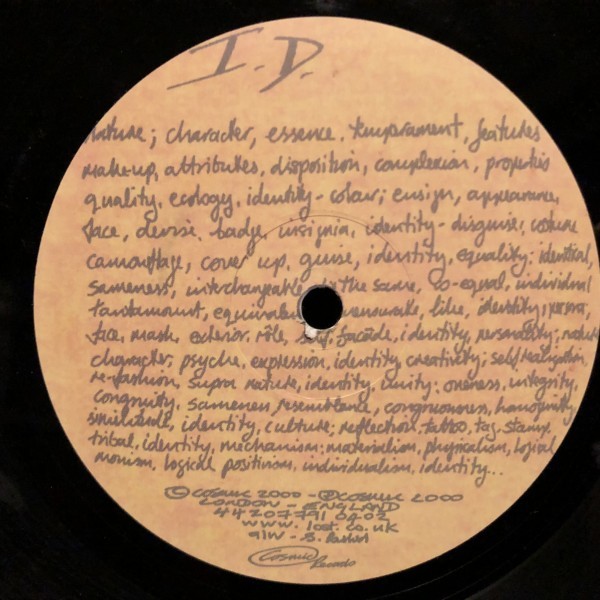 I.D.
nature; character, essence. temperament, features
make-up, attributes, disposition, complexion, properties
quality, ecology, identity - colour; ensign, appearance,
face, devise, badge, insignia, identity - disguise; costume
camouflage, cover up, guise, identity, equality: identical,
sameness, interchangeable, the same, co-equal, individual
tantamount, equivalent, like, identity; persona,
face, mask, exterior, rôle, façade, identity, personality; nature
character, psyche, expression, identity, creativity; self realization,
re-fashion, supra nature, identity, unity: oneness, integrity,
congruity, sameness, resemblance, congruousness, homogeneity,
similitude, identity, culture; reflection, tattoo, tag, stamp,
tribal, identity, mechanism; materialism, physicalism, logical
monism, logical positivism, individualism, identity...
© cosmic 2000 - ℗ cosmic 2000
LONDON - ENGLAND
44 207 791 0402
www. lost. co. uk
a/w - S.
Cosmic Records